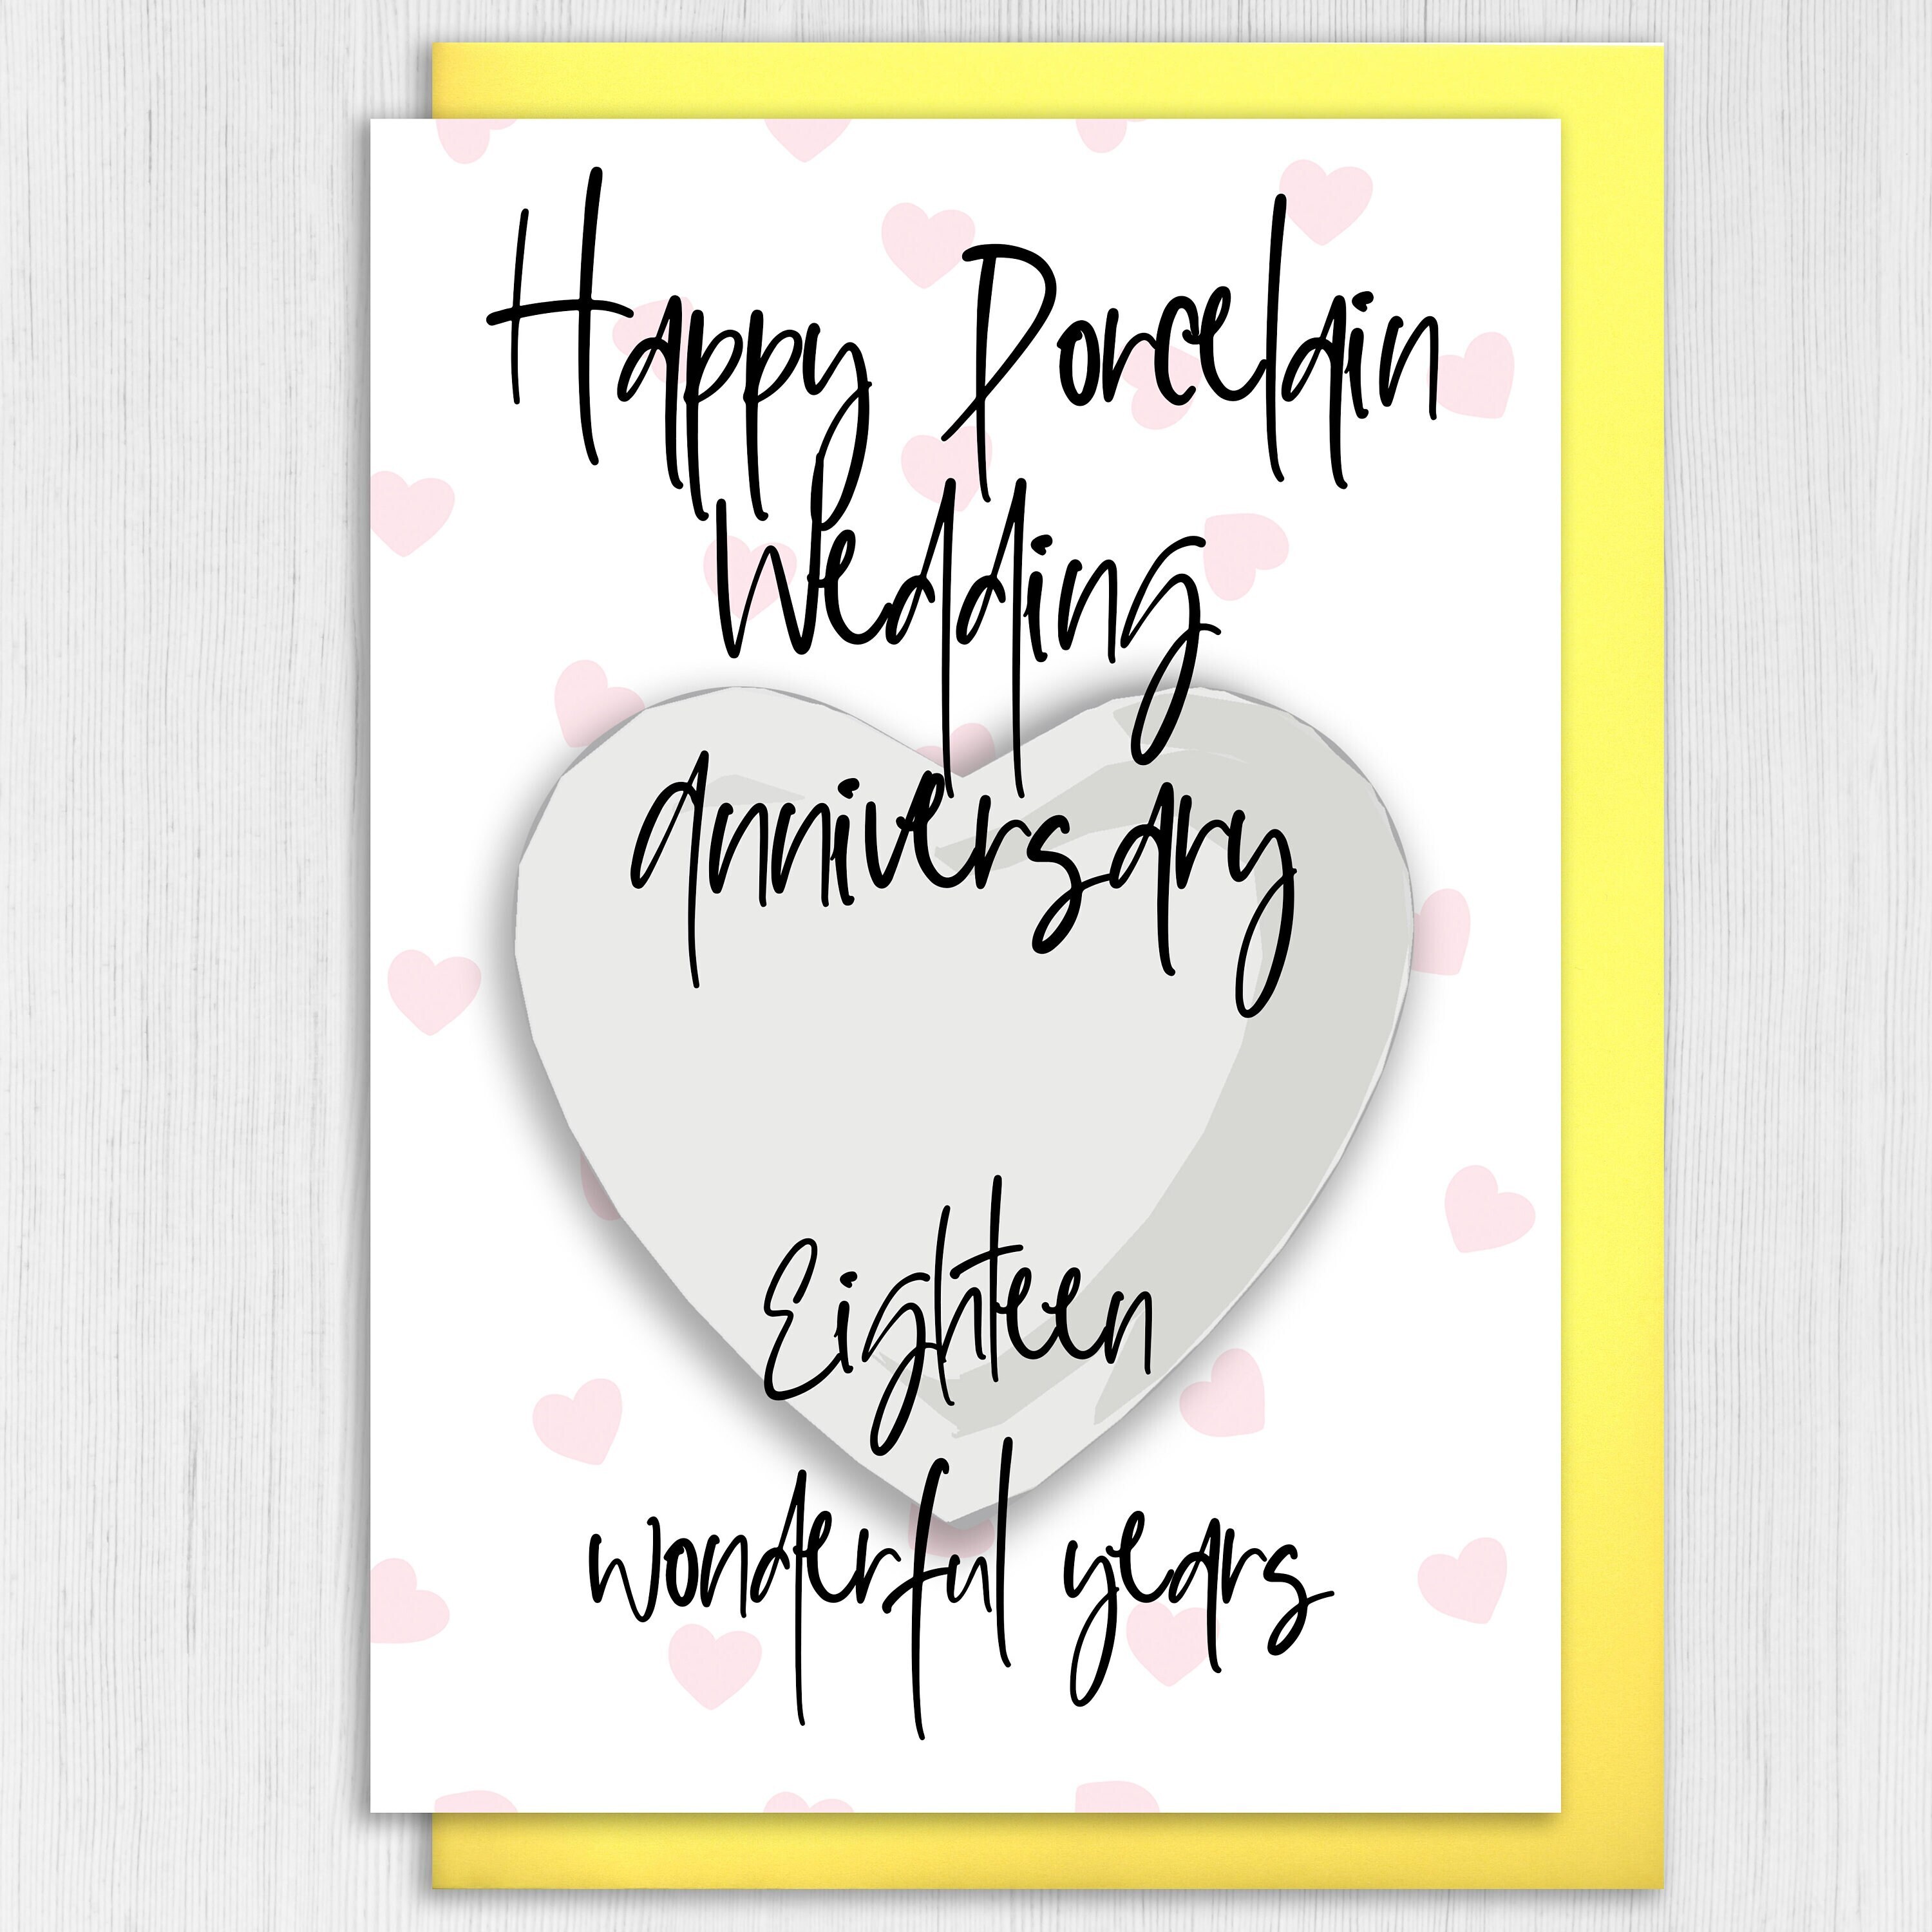 Happy Porcelain
Wedding
Anniversary
Eighteen
wonderful years